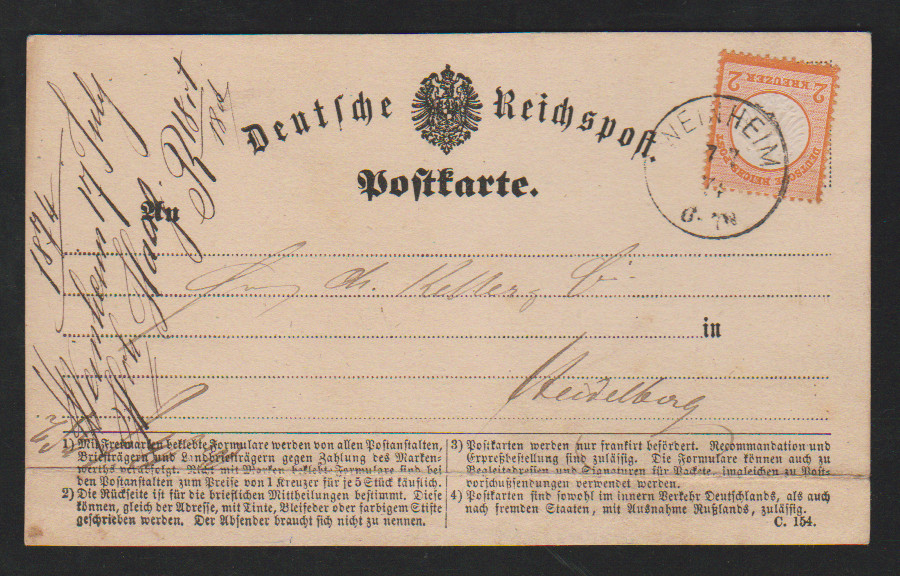 Deutsche Reichspost.
Postkarte.
An
2 KREUZER 2
DEUTSCHE REICHS-POST
WEINHEIM
7
74
6-7N
1874
Weinheim 17 July
Ch. Keller
in
Heidelberg
1) Mit Freimarken beklebte Formulare werden von allen Postanstalten,
Briefträgern und Landbriefträgern gegen Zahlung des Marken-
werths verabfolgt. Nicht mit Marken beklebte Formulare sind bei
den Postanstalten zum Preise von 1 Kreuzer für je 5 Stück käuflich.
2) Die Rückseite ist für die brieflichen Mittheilungen bestimmt. Diese
können, gleich der Adresse, mit Tinte, Bleifeder oder farbigem Stifte
geschrieben werden. Der Absender braucht sich nicht zu nennen.
3) Postkarten werden nur frankirt befördert. Recommandation und
Expreßbestellung sind zulässig. Die Formulare können auch zu
Begleitadressen und Signaturen für Packete, imgleichen zu Post-
vorschußsendungen verwendet werden.
4) Postkarten sind sowohl im innern Verkehr Deutschlands, als auch
nach fremden Staaten, mit Ausnahme Rußlands, zulässig.
C. 154.